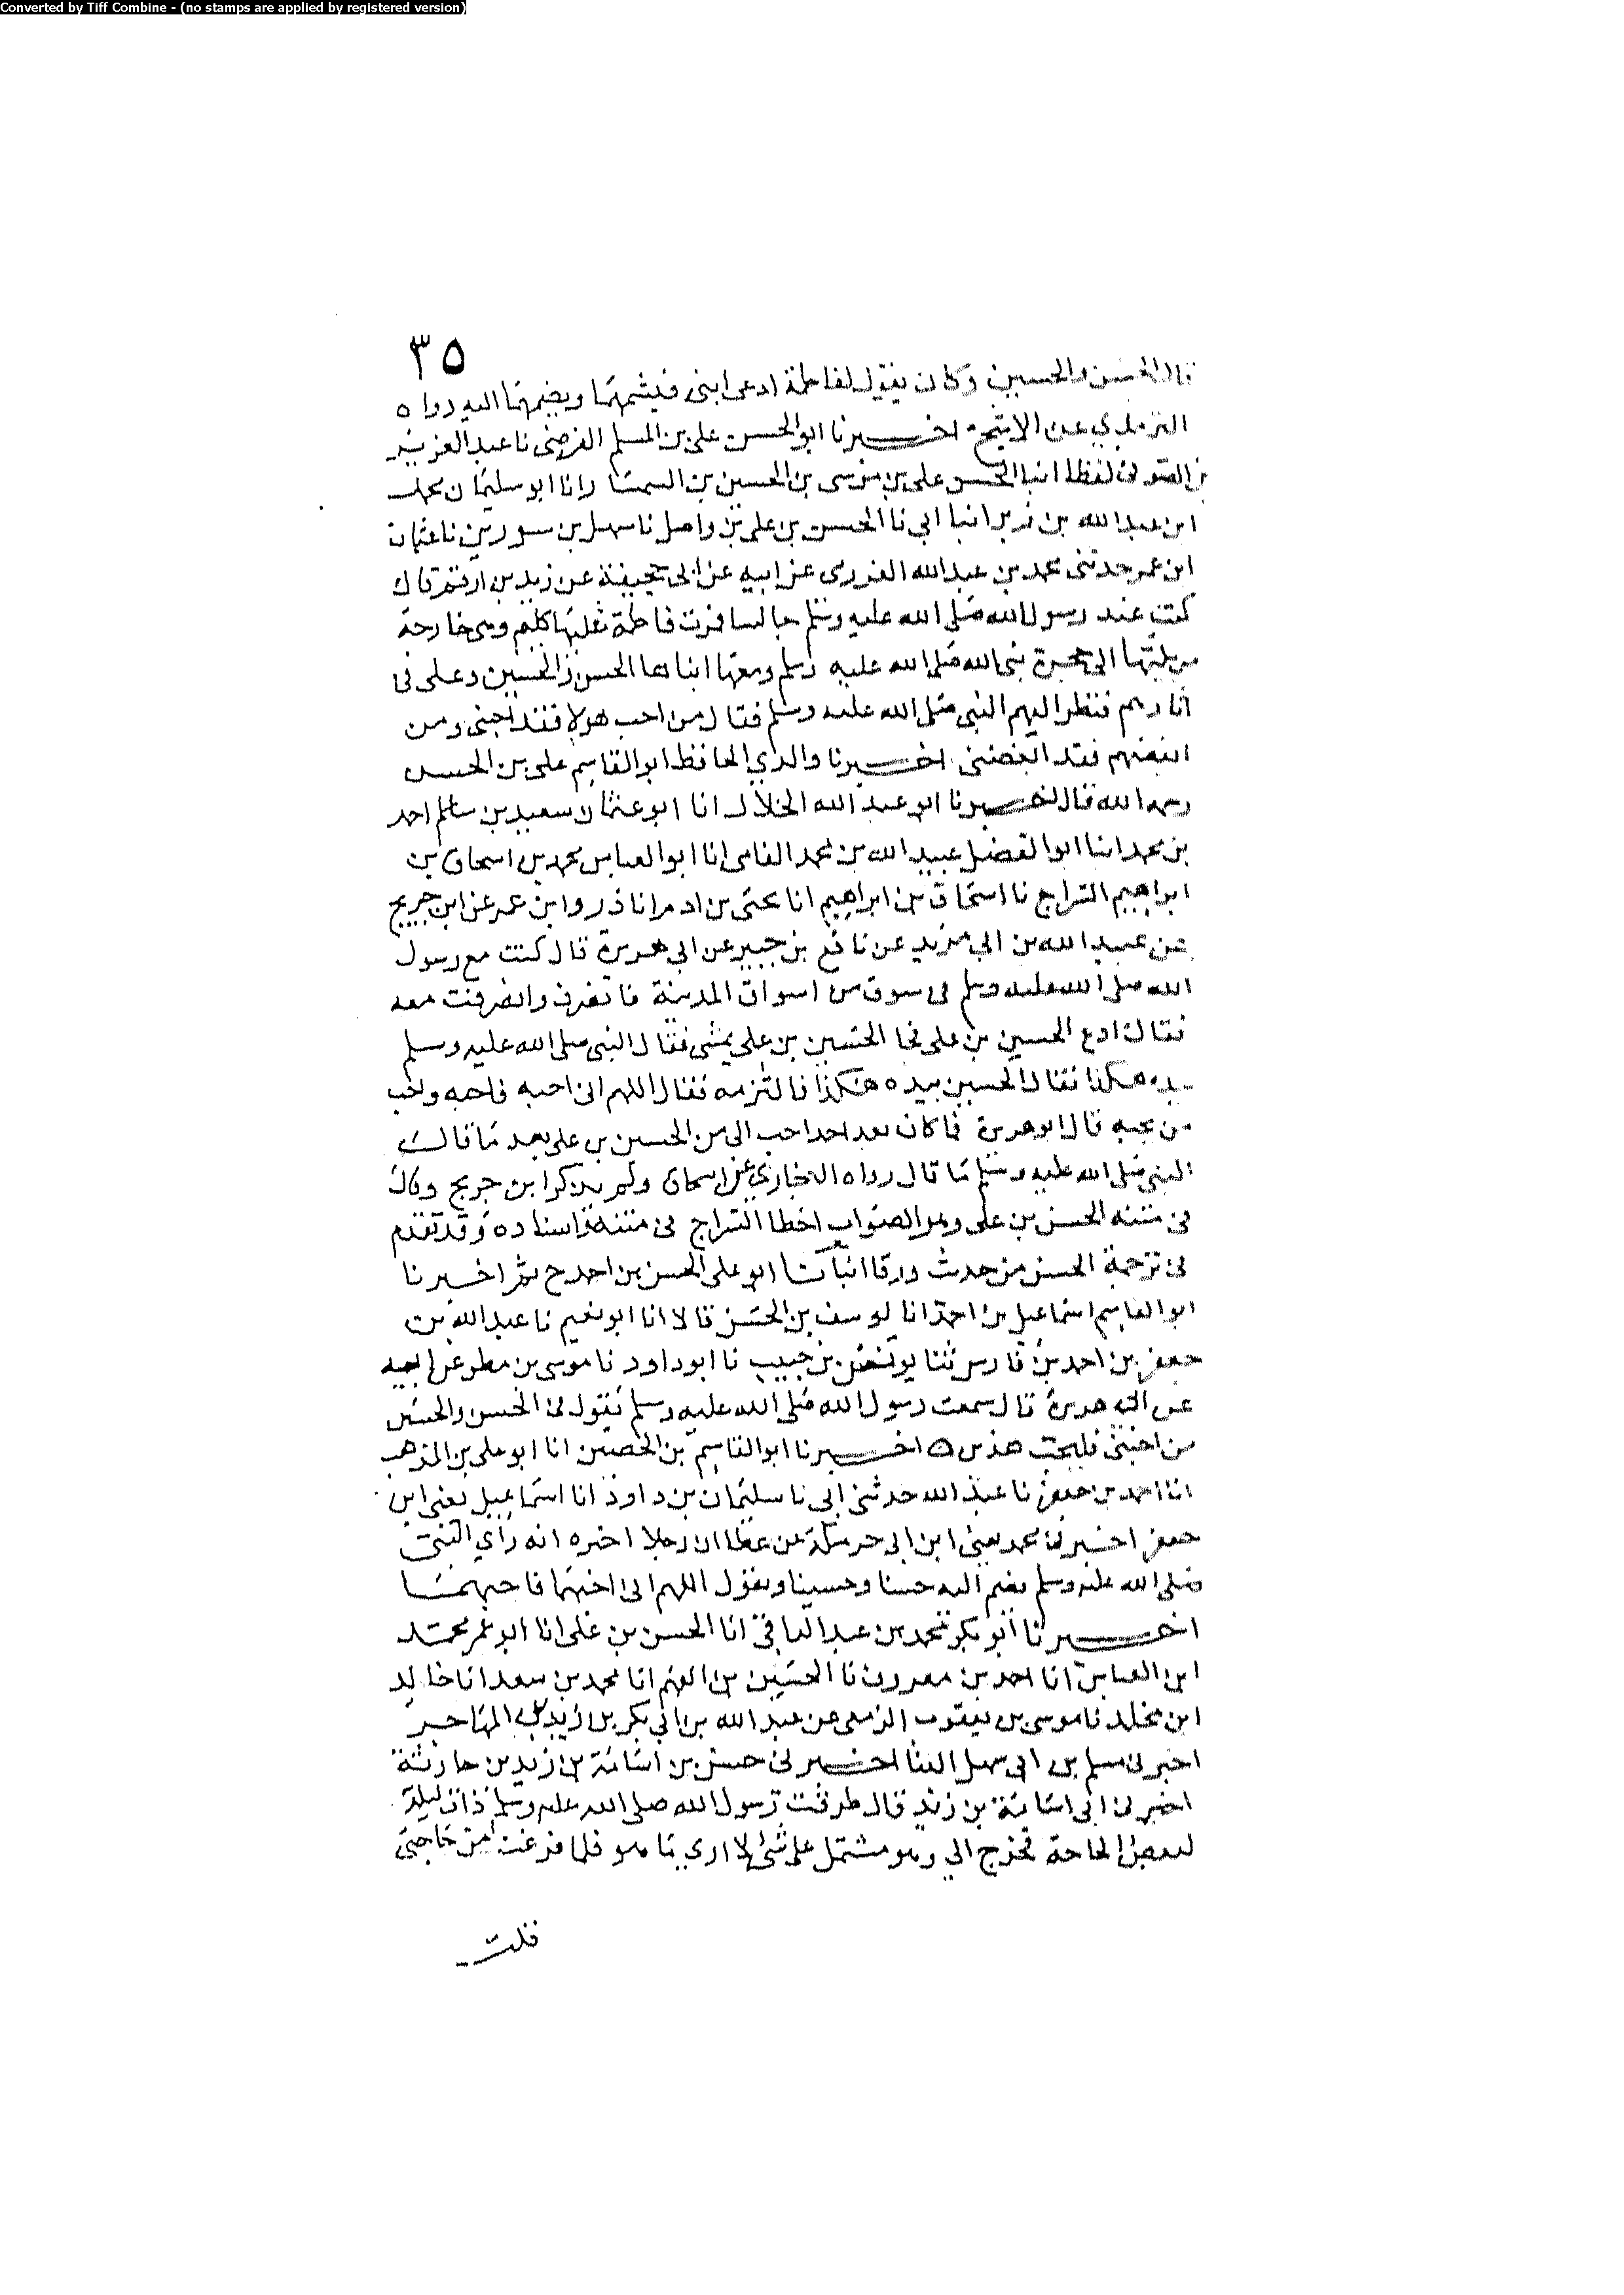 Converted by Tiff Combine - (no stamps are applied by registered version)
٣٥
قال الحسن والحسين وكان يقول لفاطمة ادعى ابنى فيشمهما ويضمهما اليه رواه
الترمذي عن الاشج اخبرنا ابو الحسن على بن المسلم الفرضى نا عبد العزيز
الصوفى لفظا انبا الحسن على بن موسى بن الحسين بن السمسا رانا ابو سليمان محمد
ابن عبد الله بن زبر انبا ابي نا الحسن بن على بن واصل نا سهل بن سورين نا عثمان
ابن عمر حدثنى محمد بن عبد الله الفزرى عن ابيه عن ابى جحيفة عن زيد بن ارقم قال
كنت عند رسول الله صلى الله عليه وسلم جالسا فمرت فاطمة عليها كلهم وهى خارجة
من بيتها الى حجرة نبى الله صلى الله عليه وسلم ومعها ابناها الحسن والحسين وعلى فى
اثارهم فنظر اليهم النبى صلى الله عليه وسلم فقال من احب هولا فقد احبنى ومن
ابغضهم فقد ابغضنى اخبرنا والدي الحافظ ابو القاسم على بن الحسن
رحمه الله قال اخبرنا ابو عبد الله الخلال انا ابو عثمان سعيد بن سالم احد
بن محمد انبا ابو الفضل عبيد الله بن محمد الفامى انا ابو العباس محمد بن اسحاق بن
ابراهيم السراج نا اسحاق بن ابراهيم انا يحيى بن ادم انا ذروا بن عمر عن ابن جريج
عن عبيد الله بن ابي مزيد عن نافع بن جبير عن ابي هريرة قال كنت مع رسول
الله صلى الله عليه وسلم فى سوق من اسواق المدينة فانصرف وانصرفت معه
فقال ادع الحسين بن على فجا الحسين بن على يمشى فقال النبى صلى الله عليه وسلم
بيده هكذا فقال الحسين بيده هكذا فالتزمه فقال اللهم انى احبه فاحبه واحب
من يحبه قال ابو هريرة فما كان بعد احد احب الى من الحسين بن على بعد ما قال
النبى صلى الله عليه وسلم ما قال رواه البخاري عن اسحاق ولم يذكر ابن جريج وقال
فى متنه الحسن بن على وهو الصواب اخطا السراج فى متنه واسناده وقد تقدم
فى ترجمة الحسن من حديث ورقا انبانا ابو على الحسن بن احمد ح ثم اخبرنا
ابو القاسم اسماعيل بن احمد انا يوسف بن الحسن قالا انا ابو نعيم نا عبد الله بن
جعفر بن احمد بن فارس ثنا يونس بن حبيب نا ابو داود نا موسى بن مطر عن ابيه
عن ابى هريرة قال سمعت رسول الله صلى الله عليه وسلم يقول فى الحسن والحسين
من احبنى فليحب هذين ه اخبرنا ابو القاسم بن الحصين انا ابو على بن المذهب
انا احمد بن جعفر نا عبد الله حدثنى ابى نا سليمان بن داود انا اسماعيل يعنى ابن
جعفر اخبرنى محمد يعنى ابن ابى حرملة عن عطا ان رجلا اخبره انه رأي النبى
صلى الله عليه وسلم يضم اليه حسنا وحسينا ويقول اللهم انى احبهما فاحبهما
اخبرنا ابو بكر محمد بن عبد الباقى انا الحسن بن على انا ابو عمر محمد
ابن العباس انا احمد بن معروف نا الحسين بن الفهم انا محمد بن سعد انا خالد
ابن مخلد نا موسى بن يعقوب الزمعى عن عبد الله بن ابي بكر بن زيد بن المهاجر
اخبرنى مسلم بن ابى سهل النبا اخبرنى حسن بن اسامة بن زيد بن حارثة
اخبرنى ابى اسامة بن زيد قال طرقت رسول الله صلى الله عليه وسلم ذات ليلة
لبعض الحاجة فخرج الي وهو مشتمل على شئ لا ادري ما هو فلما فرغت من حاجتى
قلت